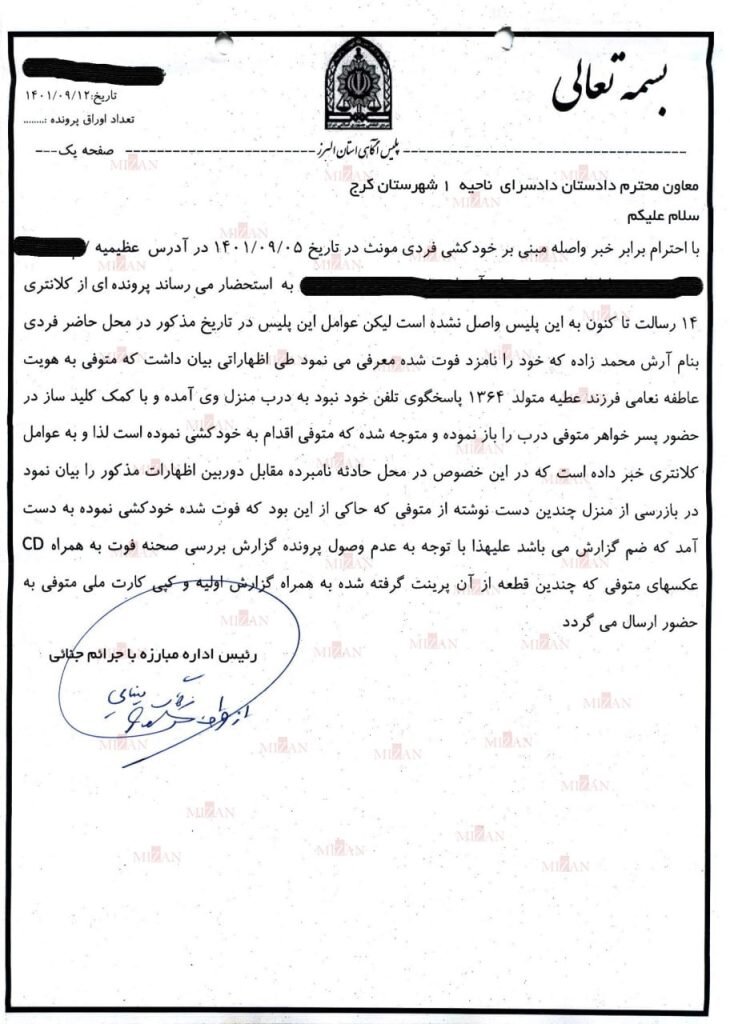 بسمه تعالی
تاریخ:۱۴۰۱/۰۹/۱۲
تعداد اوراق پرونده :........
پلیس آگاهی استان البرز
صفحه یک
معاون محترم دادستان دادسرای ناحیه ۱ شهرستان کرج
سلام علیکم
با احترام برابر خبر واصله مبنی بر خودکشی فردی مونث در تاریخ ۱۴۰۱/۰۹/۰۵ در آدرس عظیمیه /
به استحضار می رساند پرونده ای از کلانتری
۱۴ رسالت تا کنون به این پلیس واصل نشده است لیکن عوامل این پلیس در تاریخ مذکور در محل حاضر فردی
بنام آرش محمد زاده که خود را نامزد فوت شده معرفی می نمود طی اظهاراتی بیان داشت که متوفی به هویت
عاطفه نعامی فرزند عطیه متولد ۱۳۶۴ پاسخگوی تلفن خود نبود به درب منزل وی آمده و با کمک کلید ساز در
حضور پسر خواهر متوفی درب را باز نموده و متوجه شده که متوفی اقدام به خودکشی نموده است لذا و به عوامل
کلانتری خبر داده است که در این خصوص در محل حادثه نامبرده مقابل دوربین اظهارات مذکور را بیان نمود
در بازرسی از منزل چندین دست نوشته از متوفی که حاکی از این بود که فوت شده خودکشی نموده به دست
آمد که ضم گزارش می باشد علیهذا با توجه به عدم وصول پرونده گزارش بررسی صحنه فوت به همراه CD
عکسهای متوفی که چندین قطعه از آن پرینت گرفته شده به همراه گزارش اولیه و کپی کارت ملی متوفی به
حضور ارسال می گردد
رئیس اداره مبارزه با جرائم جنائی
MIZAN